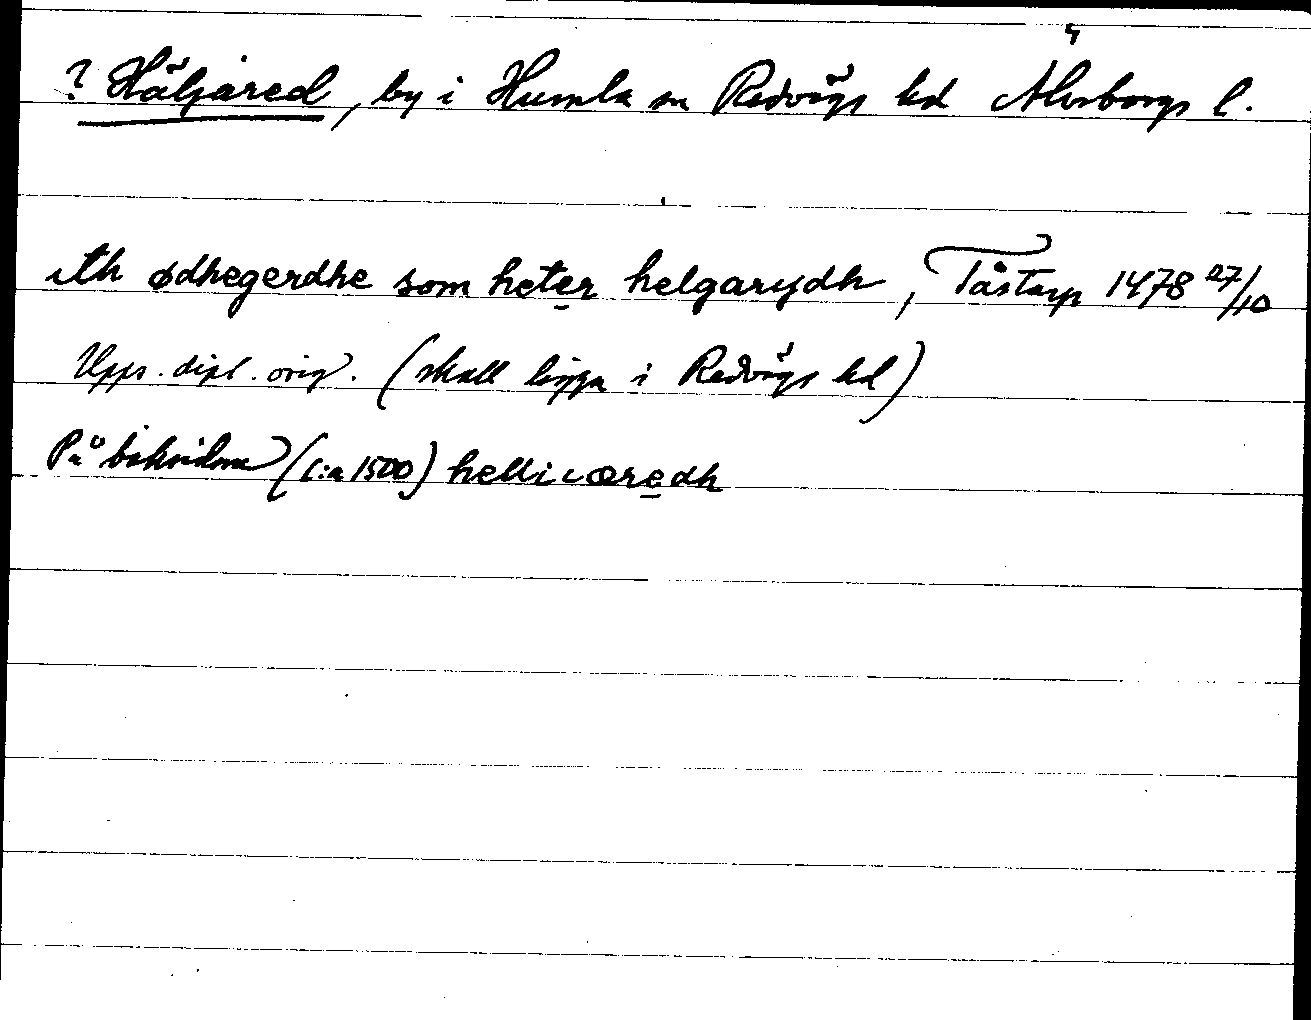 ? Häljared, by i Humla sn Redvägs hd Älvsborgs l.
eth ødhegerdhe som heter helgarydh, Tåstarp 1478 27/10
Upps. dipl. orig. (skall ligga i Redvägs hd)
På baksidan (c:a 1500) helliæredh